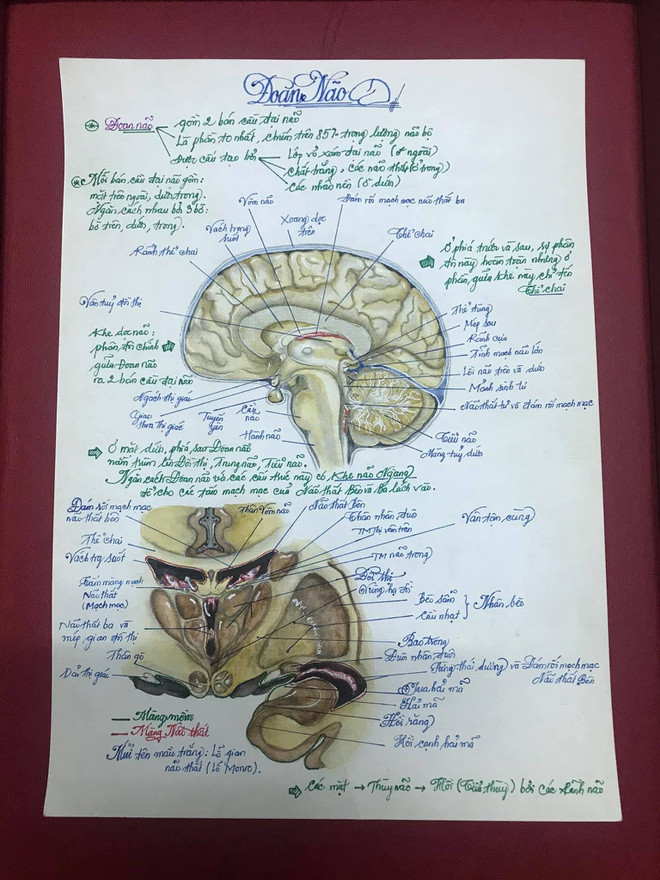 Đoan Não
Đoan não
gồm 2 bán cầu đại não
Là phần to nhất, chiếm trên 85% trọng lượng não bộ
Được cấu tạo bởi
Lớp vỏ xám đại não (ở ngoài)
Chất trắng, các não thất (ở trong)
Các nhân nền (ở dưới)
Mỗi bán cầu đại não gồm:
mặt trên ngoài, dưới, trong.
Ngăn cách nhau bởi 3 bờ:
bờ trên, dưới, trong.
Vòm não
Đám rối mạch mạc não thất ba
Xoang dọc
trên
Vách trong
suốt
Thể chai
Rãnh thể chai
Ở phía trước và sau, sự phân
tới này hoàn toàn nhưng ở
phần giữa khe này, chỉ tới
thể chai
Vân tuỷ đồi thị
Khe dọc não:
phân đôi chính
giữa Đoan não
ra 2 bán cầu đại não
Thể tùng
Mép sau
Rãnh cựa
Tĩnh mạch não lớn
Lồi não trên và dưới
Mảnh sinh tư
Não thất tư và đám rối mạch mạc
Ngách thị giác
Giao
thoa thị giác
Tuyến
yên
Cầu
não
Hành não
Tiểu não
Màng tuỷ dưới
Ở mặt dưới, phía sau Đoan não
nằm trùm lên Đồi thị, Trung não, Tiểu não.
Ngăn cách Đoan não và các cấu trúc này có Khe não Ngang
để cho các tấm mạch mạc của Não thất Bên và Ba lách vào.
Đám rối mạch mạc
não thất bên
Thân Vòm não
Não thất Bên
Thân nhân đuôi
TM Thị vân trên
Vân tận cùng
Thể chai
Vách trg suốt
TM não trong
Tấm màng mạch
Não thất 3
(Mạch mạc)
Đồi thị
Vùng hạ đồi
Bèo sẫm
Cầu nhạt
Nhân bèo
Não thất ba và
mép gian đồi thị
Bao trong
Đuôi nhân đuôi
Thể gò
Dải thị giác
Sừng thái dương và Đám rối mạch mạc
Não thất Bên
Tua hải mã
Hải mã
Hồi răng
Hồi cạnh hải mã
Màng mềm
Màng Não thất
Mũi tên màu trắng: Lỗ gian
não thất (Lỗ Monro).
Các mặt → Thùy não → Hồi (Tiểu thùy) bởi các Rãnh não